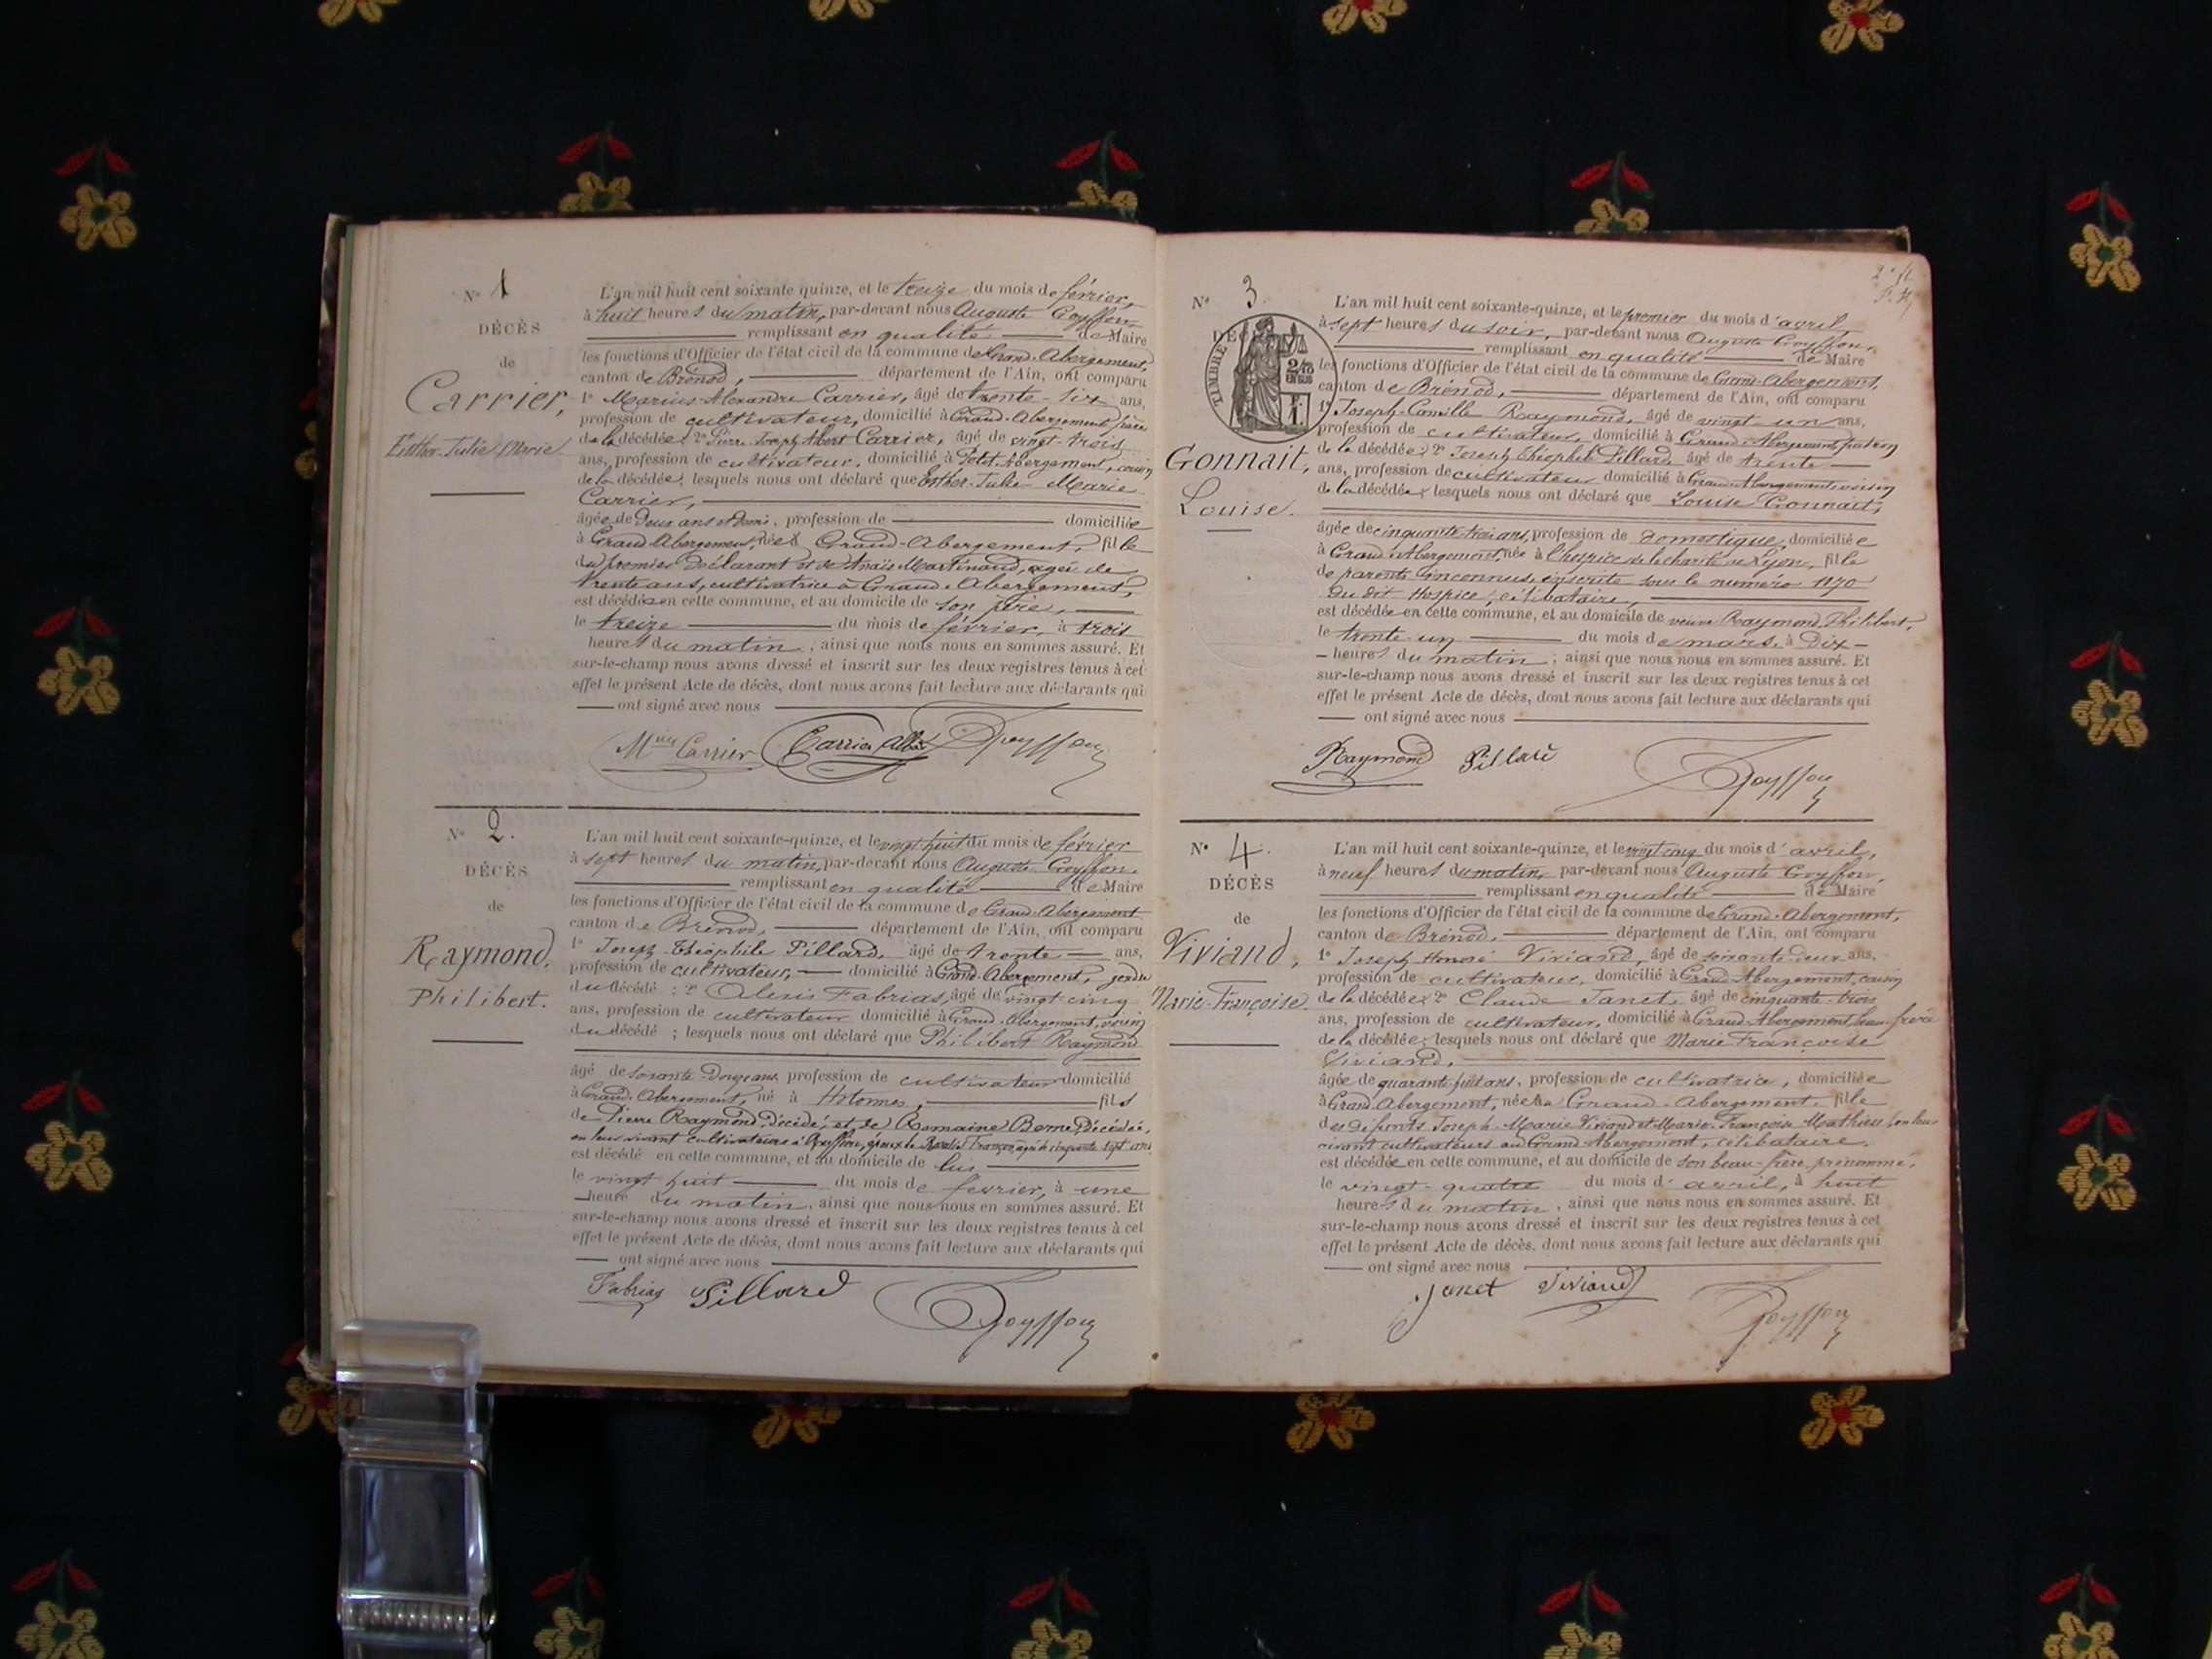 N° 1
DÉCÈS
de
Carrier,
Esther-Julie-Marie
L'an mil huit cent soixante quinze, et le treize du mois de février,
à huit heures du matin, par-devant nous Auguste Goyffon
remplissant en qualité de Maire
les fonctions d'Officier de l'état civil de la commune de Grand-Abergement,
canton de Brénod, département de l'Ain, ont comparu
1° Marius-Alexandre Carrier, âgé de trente-six ans,
profession de cultivateur, domicilié à Grand-Abergement, père
de la décédée; 2° Pierre-Joseph Albert Carrier, âgé de vingt-trois
ans, profession de cultivateur, domicilié à Petit-Abergement, cousin
de la décédée; lesquels nous ont déclaré que Esther-Julie-Marie
Carrier,
âgée de deux ans et demi, profession de domiciliée
à Grand-Abergement, née à Grand-Abergement, fille
du premier déclarant et de Anaïs Martinand, agée de
trente ans, cultivatrice à Grand-Abergement,
est décédée en cette commune, et au domicile de son père,
le treize du mois de février, à trois
heures du matin; ainsi que nous nous en sommes assuré. Et
sur-le-champ nous avons dressé et inscrit sur les deux registres tenus à cet
effet le présent Acte de décès, dont nous avons fait lecture aux déclarants qui
ont signé avec nous
Mius Carrier Carrier Albert Goyffon
N° 2.
DÉCÈS
de
Raymond,
Philibert.
L'an mil huit cent soixante-quinze, et le vingt huit du mois de février
à sept heures du matin, par-devant nous Auguste Goyffon,
remplissant en qualité de Maire
les fonctions d'Officier de l'état civil de la commune de Grand-Abergement
canton de Brénod, département de l'Ain, ont comparu
1° Joseph Théophile Pillard, âgé de trente ans,
profession de cultivateur, domicilié à Grand-Abergement, gendre
du décédé : 2° Alexis Fabrias, âgé de vingt cinq
ans, profession de cultivateur domicilié à Grand-Abergement, voisin
du décédé ; lesquels nous ont déclaré que Philibert Raymond
âgé de soixante-douze ans, profession de cultivateur domicilié
à Grand-Abergement, né à Hotonnes, fils
de Pierre Raymond, décédé, et de Romaine Berne, décédée,
en leur vivant cultivateurs à époux de agée de cinquante sept ans
est décédé en cette commune, et au domicile de lui
le vingt huit du mois de février, à une
heure du matin, ainsi que nous nous en sommes assuré. Et
sur-le-champ nous avons dressé et inscrit sur les deux registres tenus à cet
effet le présent Acte de décès, dont nous avons fait lecture aux déclarants qui
ont signé avec nous
Fabrias Pillard Goyffon
2e ft.
N° 3.
DÉC
TIMBRE
Gonnait,
Louise.
L'an mil huit cent soixante-quinze, et le premier du mois d'avril,
à sept heures du soir, par-devant nous Auguste Goyffon,
remplissant en qualité de Maire
les fonctions d'Officier de l'état civil de la commune de Grand-Abergement,
canton de Brénod, département de l'Ain, ont comparu
1° Joseph-Camille Raymond, âgé de vingt-un ans,
profession de cultivateur, domicilié à Grand-Abergement, patron
de la décédée; 2° Joseph Théophile Pillard, âgé de trente
ans, profession de cultivateur domicilié à Grand-Abergement, voisin
de la décédée; lesquels nous ont déclaré que Louise Gonnait,
âgée de cinquante-trois ans, profession de domestique, domiciliée
à Grand-Abergement, née à l'hospice de la charité de Lyon, fille
de parents inconnus, inscrite sous le numéro 1170
du dit Hospice, célibataire,
est décédée en cette commune, et au domicile de veuve Raymond, Philibert,
le trente-un du mois de mars, à dix
heures du matin; ainsi que nous nous en sommes assuré. Et
sur-le-champ nous avons dressé et inscrit sur les deux registres tenus à cet
effet le présent Acte de décès, dont nous avons fait lecture aux déclarants qui
ont signé avec nous
Raymond Pillard Goyffon
N° 4.
DÉCÈS
de
Viviand,
Marie-Françoise.
L'an mil huit cent soixante-quinze, et le vingt cinq du mois d'avril,
à neuf heures du matin, par-devant nous Auguste Goyffon,
remplissant en qualité de Maire
les fonctions d'Officier de l'état civil de la commune de Grand-Abergement,
canton de Brénod, département de l'Ain, ont comparu
1° Joseph Honoré Viviand, âgé de soixante-deux ans,
profession de cultivateur, domicilié à Grand-Abergement, cousin
de la décédée; 2° Claude Janet, âgé de cinquante-trois
ans, profession de cultivateur, domicilié à Grand-Abergement, beau-frère
de la décédée; lesquels nous ont déclaré que Marie Françoise
Viviand,
âgée de quarante-huit ans, profession de cultivatrice, domiciliée
à Grand-Abergement, née au Grand-Abergement, fille
des défunts Joseph-Marie Viviand et Marie-Françoise Mathieu, en leur
vivant cultivateurs au Grand-Abergement, célibataire,
est décédée en cette commune, et au domicile de son beau-frère prénommé,
le vingt-quatre du mois d'avril, à huit
heures du matin, ainsi que nous nous en sommes assuré. Et
sur-le-champ nous avons dressé et inscrit sur les deux registres tenus à cet
effet le présent Acte de décès, dont nous avons fait lecture aux déclarants qui
ont signé avec nous
Janet Viviand Goyffon